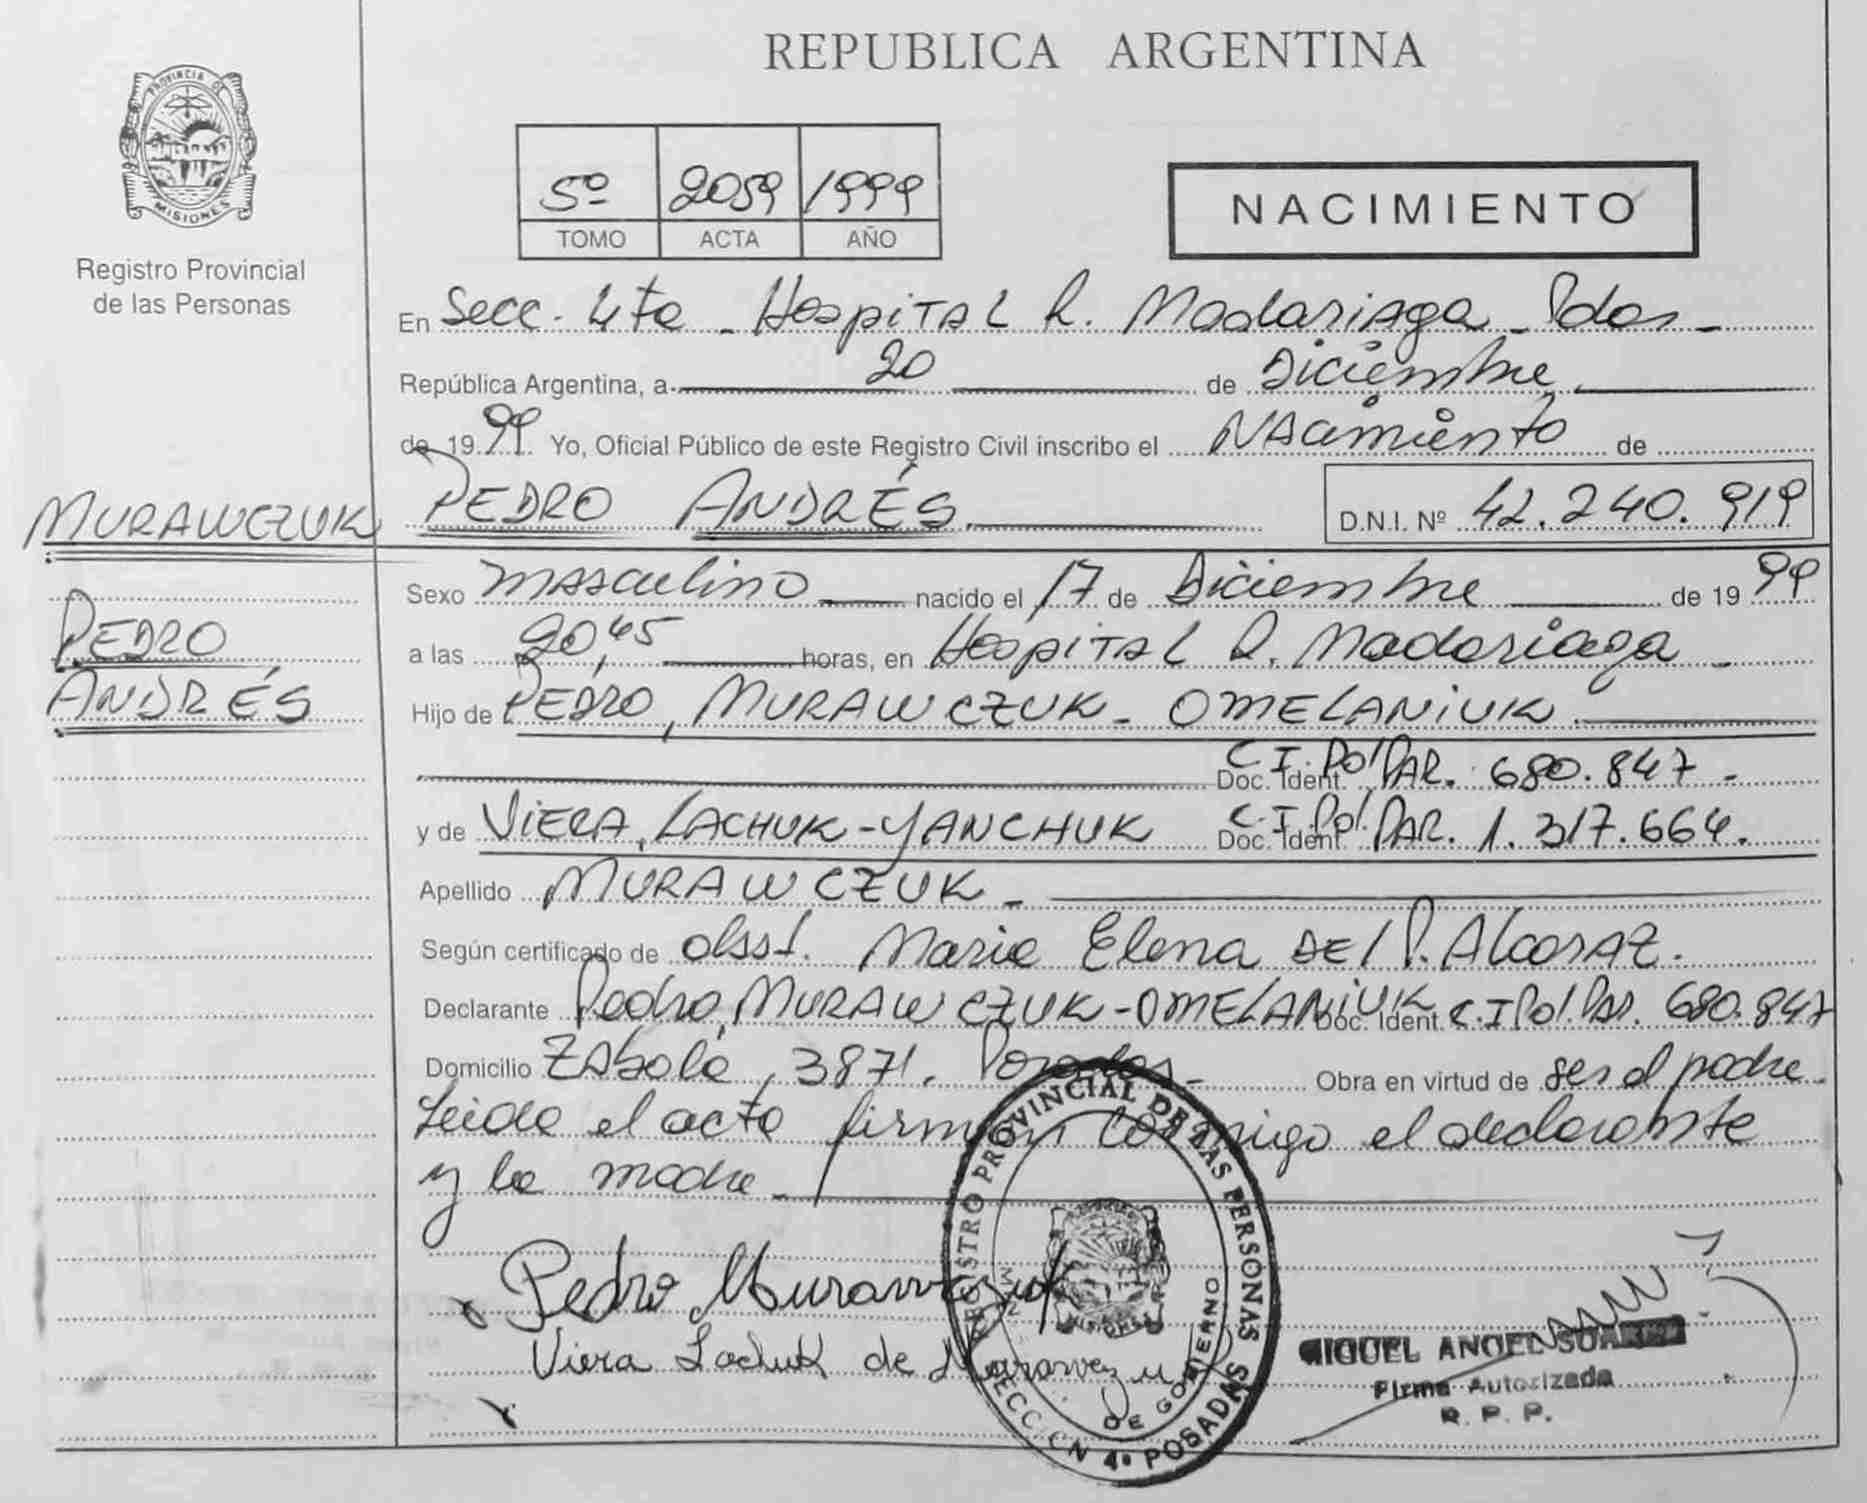 REPUBLICA ARGENTINA
PROVINCIA DE
MISIONES
Registro Provincial
de las Personas
5º 2059 1999
TOMO ACTA AÑO
NACIMIENTO
En Secc. 4ta - Hospital R. Madariaga - Pdas -
República Argentina, a 20 de Diciembre
de 1999 Yo, Oficial Público de este Registro Civil inscribo el Nacimiento de
MURAWCZUK PEDRO ANDRÉS D.N.I. Nº 42.240.919
PEDRO
ANDRÉS
Sexo masculino nacido el 17 de Diciembre de 1999
a las 20,45 horas, en Hospital R. Madariaga -
Hijo de PEDRO, MURAWCZUK - OMELANIUK
Doc. Ident. C.I. Pol. PAR. 680.847 -
y de VIERA, LACHUK - YANCHUK Doc. Ident. C.I. Pol. PAR. 1.317.664.
Apellido MURAWCZUK -
Según certificado de obst. Maria Elena DEL P. Alcaraz.
Declarante Pedro, MURAWCZUK - OMELANIUK Doc. Ident. C.I Pol. Par. 680.847
Domicilio 3871, Posadas - Obra en virtud de ser el padre -
Leida el acta firman conmigo el declarante
y la madre -
Pedro Murawczuk
Viera Lachuk de Murawczuk
REGISTRO PROVINCIAL DE LAS PERSONAS
DE GOBIERNO
SECCION 4ª POSADAS
MIGUEL ANGEL SUAREZ
Firma Autorizada
R. P. P.